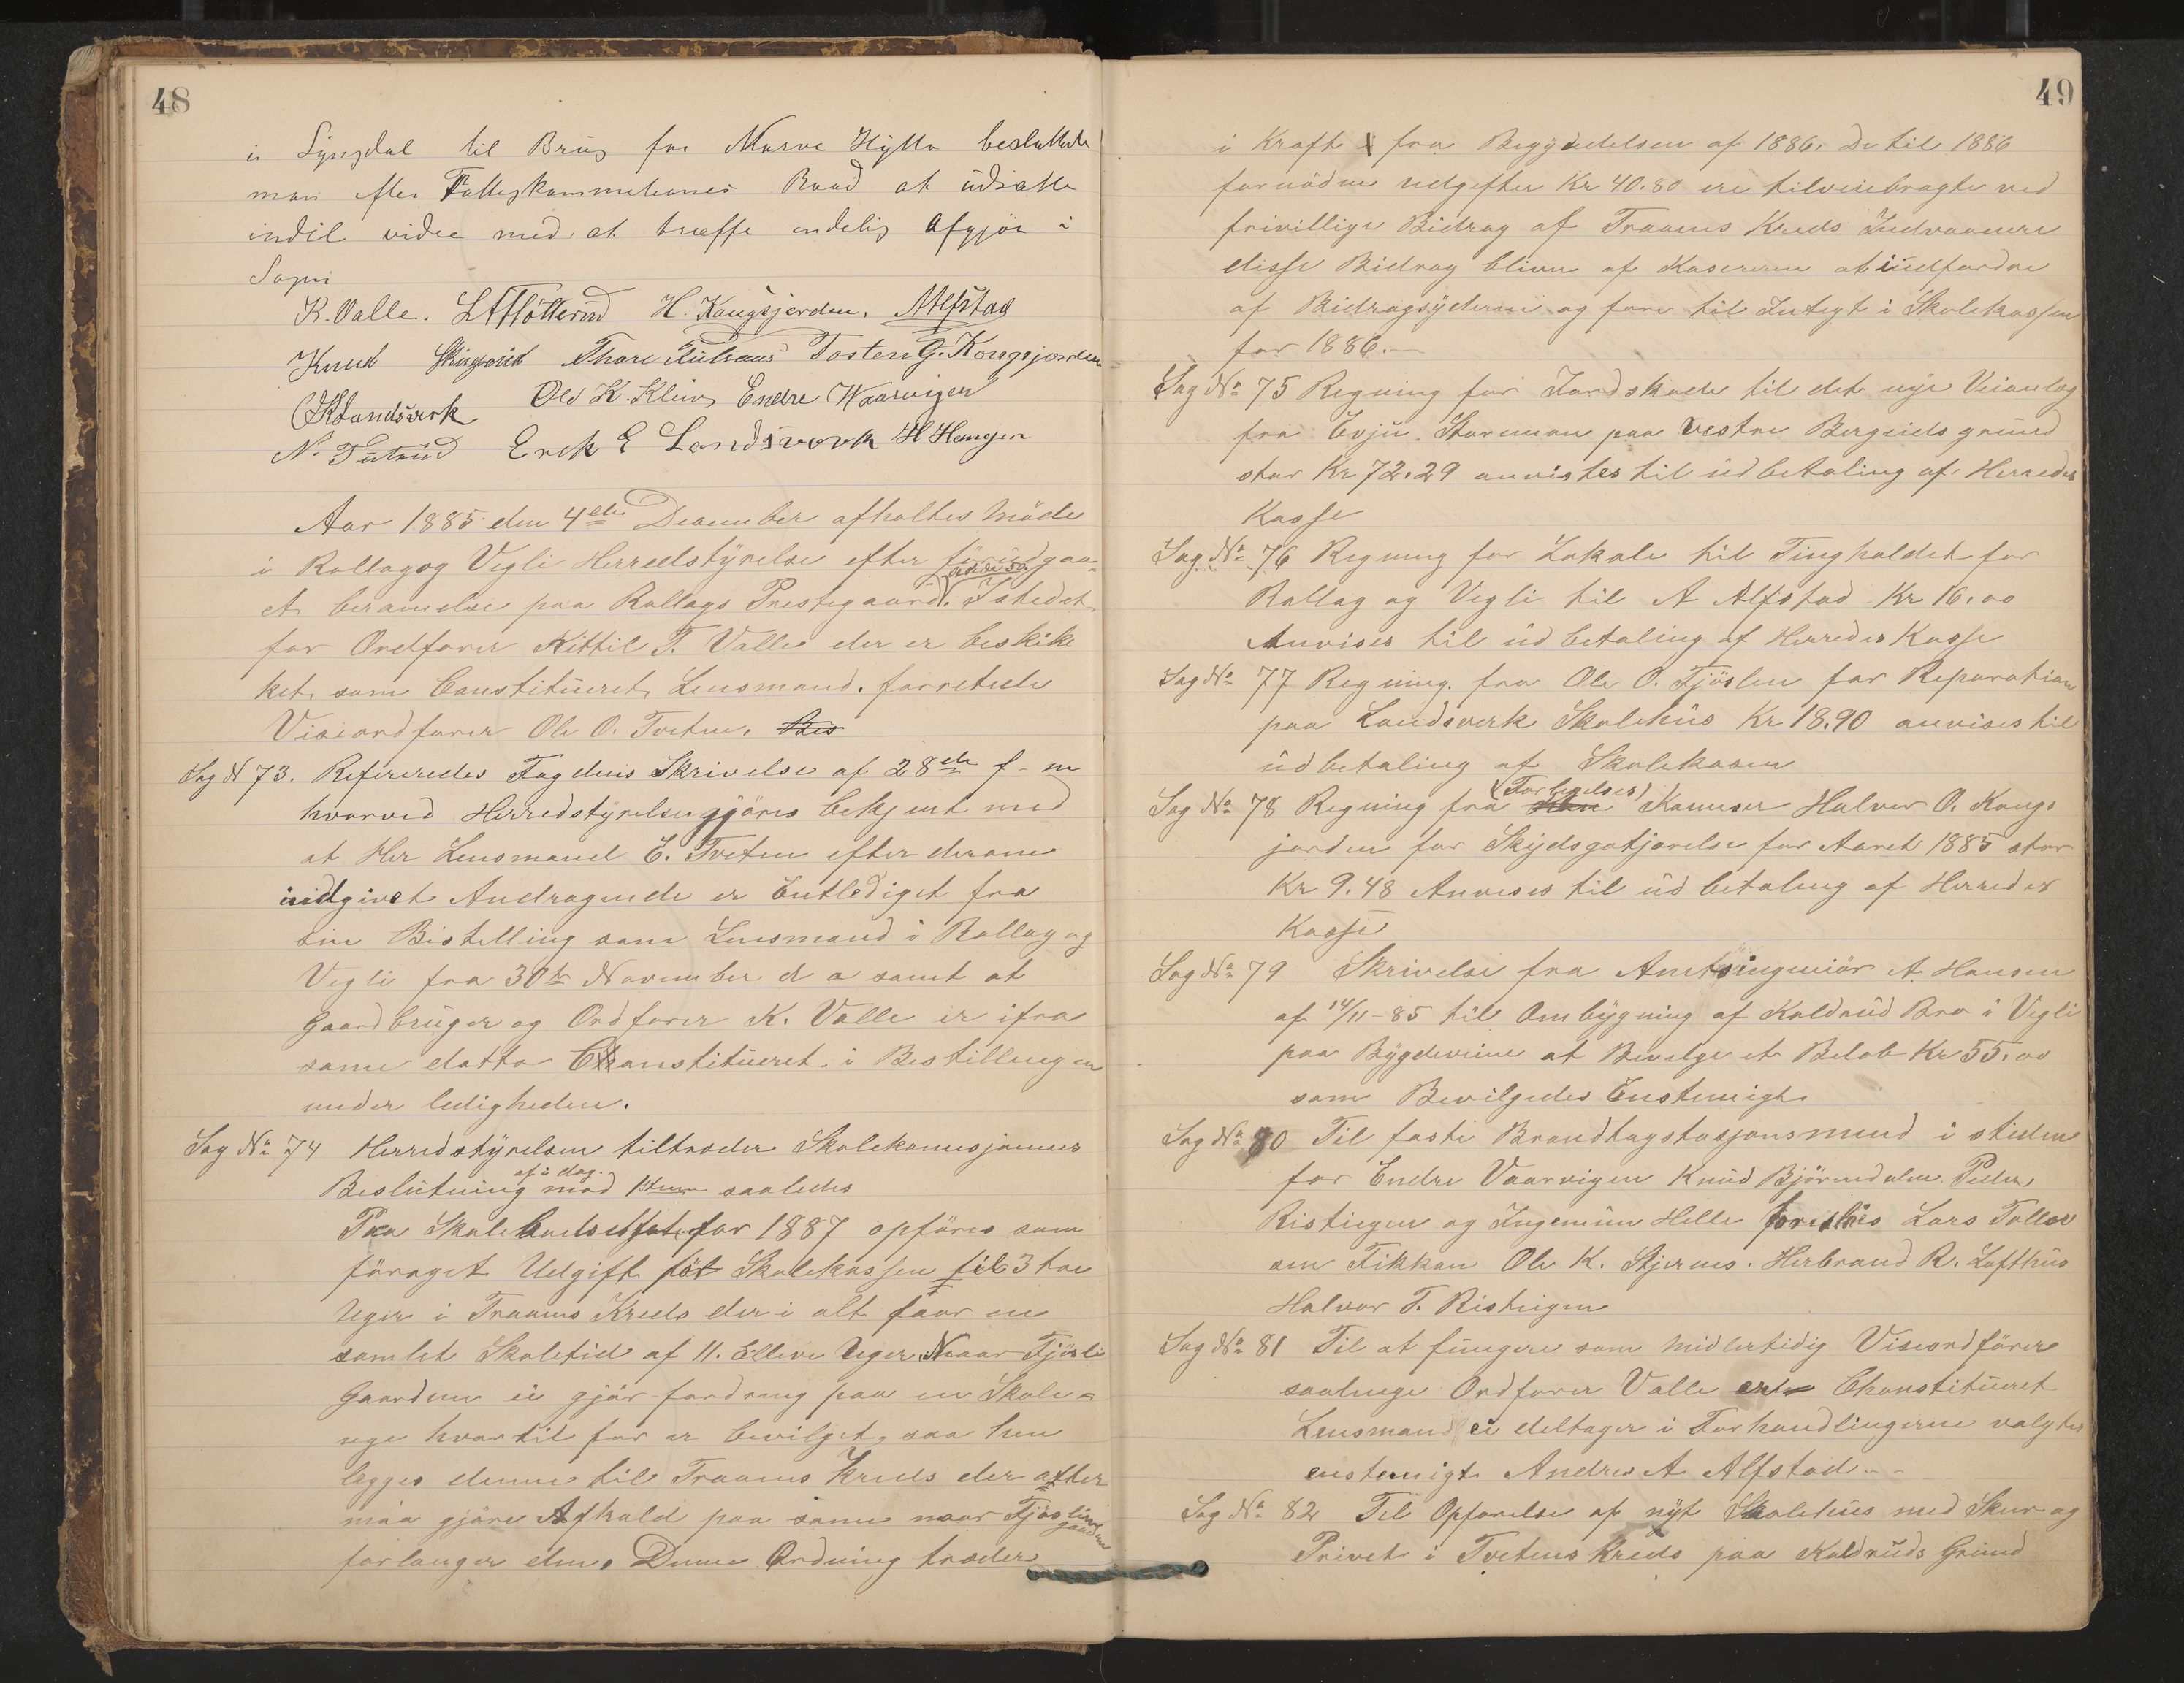 48
i Lyngdal til Brug for Marve Hytta besluttede
man efter Fattigkommetiones Raad at udsætte
indil videe med at træffe endelig Afgjør i
Sagen
K. Valle. H. Kongsjorden. AAlfstad
Knud Thore Juliani Tosten G. Kongsjorden
Landsverk Ole K. Kleiv Endre Waarvigen
Erek E Landsverk H Haugen
Aar 1885 den 4de December afholtes Möde
i Rollag og Vegli Herredstyrelse efter forudgaa-
et beramelse paa Rollags Prestegaard. Istedet
for Ordforer Kittil T. Valle der er beskik
ket som Constitueret Lensmand. forretede
Viseordforer Ole O. Tveten.
Sag N 73. Refereredes Fogdens Skrivelse af 28de f-m
hvorved Herredstyrelsen gjöres bekjent med
at Her Lensmand E. Tveten efter derom
indgivet Andragende er Entlediget fra
sin Bistelling som Lensmand i Rollag og
Vegli fra 30te November d a samt at
Gaardbruger og Ordforer K. Valle er ifra
same datto Constitueret i Bestillingen
under ledigheden.
Sag No 74 Herredstyrelsen tiltræder Skolekomisjonens
af i dag.
Beslutning mod 1 stemme saaledes
Paa Skolebudsettet for 1887 opföres som
föröget Udgift for Skolekassen til 3 tre
Uger i Traaens Kreds der i alt faar en
samlet Skoletid af 11. Elleve Uger. Naar Fjösli
Gaardene ei gjör fordring paa en Skole-
uge hvortil for er bevilget, saa hen
legges denne til Traaens Kreds der atter
maa gjöre Afkald paa same naar Fjösline
gaardene
forlanger den. Denne Ordning træder
49
i Kraft fra Begyndelsen af 1886. De til 1886
fornödne udgifter Kr 40.80 ere tilveiebragte ved
frivillige Bidrag af Traaens Kreds Indvaanere
disse Bidrag bliver af Kasereren at indfordre
af Bidragsyderne og fore til Integt i Skolekassen
for 1886.
Sag No 75 Regning for Jordskade til det nye Veianlæg
fra Evju. Storemoen paa Vestre Bergeids grund
stor Kr 72.29 anvistes til udbetaling af Herredes
Kasse
Sag No 76 Regning for Lokale til Tingholdet for
Rollag og Vegli til A Alfstad Kr 16.00
Anvises til udbetaling af Herredes Kasse
Sag No 77 Regning fra Ole O. Fjöslin for Reparation
paa Landsverk Skolehus Kr 18.90 anvises til
udbetaling af Skolekasen
(Forligelses)
Sag No 78 Regning fra Komiser Halvor O. Kongs
jorden for Skydsgotjorelse for Aaret 1885 stor
Kr 9.48 Anvises til udbetaling af Herredes
Kasse
Sag No 79 Skrivelse fra Amtsingeniör A. Hansen
af 14/11-85 til Ombygning af Koldrud Bro i Vegli
paa Bygdeveiene at Bevilge et Belob Kr 55.00
som Bevilgedes Enstemigt
Sag No 80 Til faste Brandtagstasjonsmend i steden
for Endre Vaarvigen Knud Björnedalen. Peder
Ristiegen og Ingemun Helle foreslaes Lars Tollev
sen Fikkan Ole K. Stjernes. Herbrand R. Lofthus
Halvor T. Ristiegen
Sag No 81 Til at fungere som midlertidig Viseordförer
saalenge Ordforer Valle Chonstitueret
Lensmand ei deltager i Forhandlingerne valgtes
enstemigt Andres A Alfstad.
Sag No 82 Til Opforelse af nyt Skolehus med Skur og
Privet i Tvetens Kreds paa Koldruds Grund